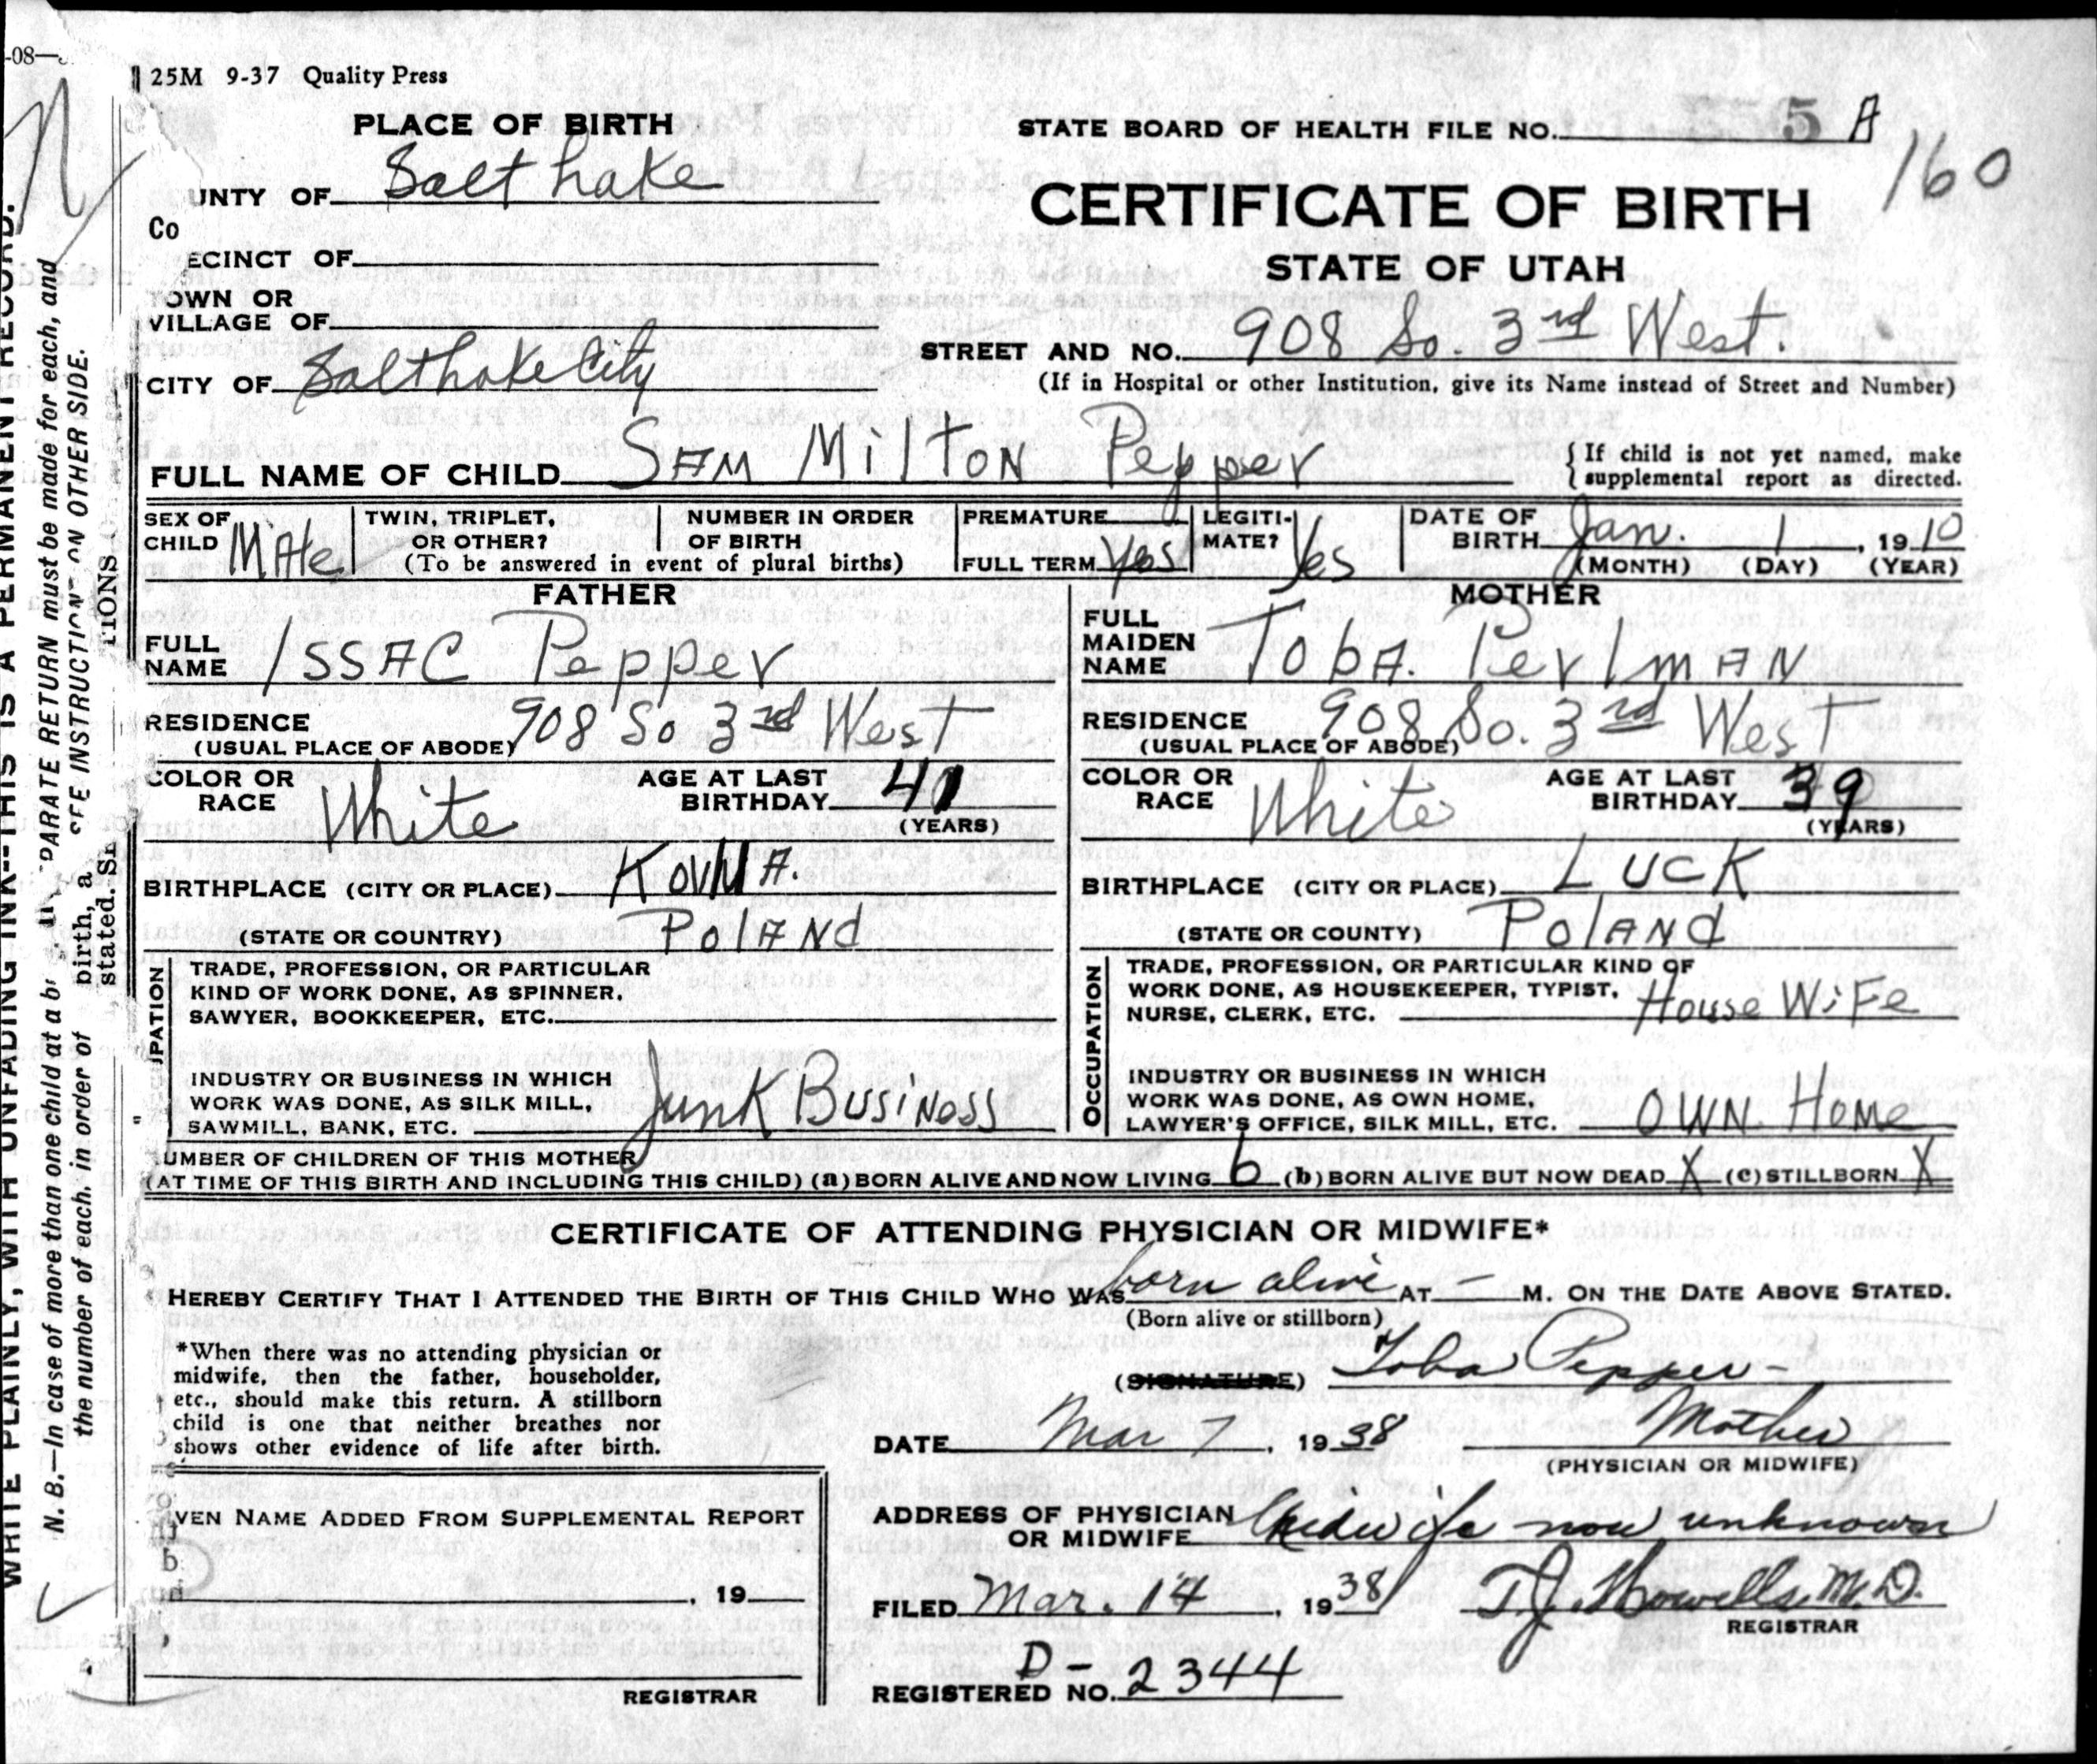 -08—
25M 9-37 Quality Press
PLACE OF BIRTH
STATE BOARD OF HEALTH FILE NO. 5 A
160
UNTY OF Salt Lake
Co
CERTIFICATE OF BIRTH
ECINCT OF
STATE OF UTAH
OWN OR
VILLAGE OF
STREET AND NO. 908 So. 3rd West.
CITY OF Salt Lake City
(If in Hospital or other Institution, give its Name instead of Street and Number)
FULL NAME OF CHILD SAM MilTON Pepper
{ If child is not yet named, make
{ supplemental report as directed.
SEX OF
CHILD MAle
TWIN, TRIPLET,
OR OTHER?
(To be answered in event of plural births)
NUMBER IN ORDER
OF BIRTH
PREMATURE
FULL TERM Yes
LEGITI-
MATE? Yes
DATE OF
BIRTH Jan. 1, 19 10
(MONTH) (DAY) (YEAR)
FATHER
FULL
NAME ISSAC Pepper
RESIDENCE 908 So 3rd West
(USUAL PLACE OF ABODE)
COLOR OR
RACE White
AGE AT LAST
BIRTHDAY 41
(YEARS)
BIRTHPLACE (CITY OR PLACE) KovNA.
(STATE OR COUNTRY) PolANd
UPATION
TRADE, PROFESSION, OR PARTICULAR
KIND OF WORK DONE, AS SPINNER,
SAWYER, BOOKKEEPER, ETC.
INDUSTRY OR BUSINESS IN WHICH
WORK WAS DONE, AS SILK MILL,
SAWMILL, BANK, ETC. JunK BusiNess
MOTHER
FULL
MAIDEN
NAME TobA. PerlmAN
RESIDENCE 908 So. 3rd West
(USUAL PLACE OF ABODE)
COLOR OR
RACE White
AGE AT LAST
BIRTHDAY 39
(YEARS)
BIRTHPLACE (CITY OR PLACE) LUCK
(STATE OR COUNTY) PolANd
OCCUPATION
TRADE, PROFESSION, OR PARTICULAR KIND OF
WORK DONE, AS HOUSEKEEPER, TYPIST,
NURSE, CLERK, ETC. House WiFe
INDUSTRY OR BUSINESS IN WHICH
WORK WAS DONE, AS OWN HOME,
LAWYER'S OFFICE, SILK MILL, ETC. OWN. Home
UMBER OF CHILDREN OF THIS MOTHER
(AT TIME OF THIS BIRTH AND INCLUDING THIS CHILD) (a) BORN ALIVE AND NOW LIVING 6 (b) BORN ALIVE BUT NOW DEAD X (c) STILLBORN X
CERTIFICATE OF ATTENDING PHYSICIAN OR MIDWIFE*
HEREBY CERTIFY THAT I ATTENDED THE BIRTH OF THIS CHILD WHO WAS born alive AT — M. ON THE DATE ABOVE STATED.
(Born alive or stillborn)
*When there was no attending physician or
midwife, then the father, householder,
etc., should make this return. A stillborn
child is one that neither breathes nor
shows other evidence of life after birth.
(SIGNATURE) Toba Pepper -
DATE Mar 7, 19 38 Mother
(PHYSICIAN OR MIDWIFE)
VEN NAME ADDED FROM SUPPLEMENTAL REPORT
, 19
REGISTRAR
ADDRESS OF PHYSICIAN
OR MIDWIFE Midwife now unknown
FILED Mar. 14, 19 38 T.J. Howells, M.D.
REGISTRAR
D -
REGISTERED NO. 2344
WRITE PLAINLY, WITH UNFADING INK--THIS IS A PERMANENT RECORD.
N. B.—In case of more than one child at a bi PARATE RETURN must be made for each, and
the number of each, in order of birth, a SEE INSTRUCTION ON OTHER SIDE.
stated. SE TIONS